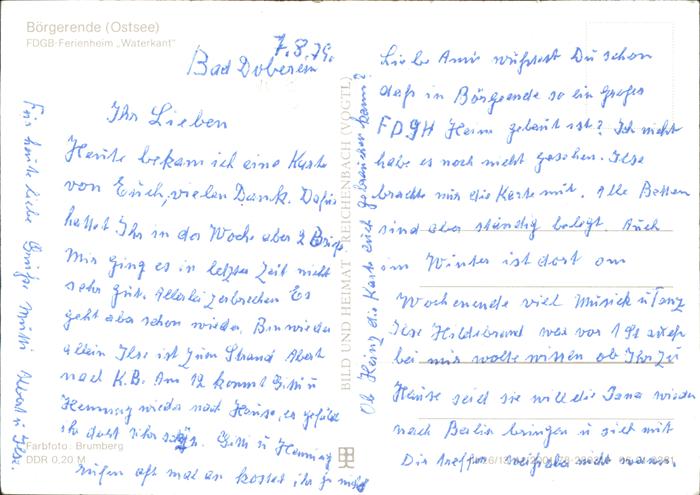 Börgerende (Ostsee)
FDGB-Ferienheim „Waterkant"
7.8.79.
Bad Doberan
Ihr Lieben
Heute bekam ich eine Karte
von Euch, vielen Dank. Dafür
hattet Ihr in der Woche aber 2 Briefe.
Mir ging es in letzter Zeit nicht
sehr gut. Allerlei zerbrechen Es
geht aber schon wieder. Bin wieder
allein Ilse ist zum Strand Albert
nach K.B. Am 12 kommt Gitti u
Henning wieder nach Hause, es gefällt
ihr dort sehr. Gitti u Henning
rufen oft mal an kostet ihr ja nichts
Für heute liebe Grüße Mutti Albert u Ilse.
Farbfoto: Brumberg
DDR 0,20 M
BILD UND HEIMAT REICHENBACH (VOGTL)
Ob Heinz die Karte auch gebrauchen kann?
Liebe Ami wußtest Du schon
daß in Börgerende so ein großes
FDGH Heim gebaut ist? Ich
habe es noch nicht gesehen. Ilse
brachte mir die Karte mit. Alle Betten
sind aber ständig belegt. Auch
im Winter ist dort am
Wochenende viel Musick u Tanz
Ilse Hildebrand war vor
bei mir wollte wissen ob Ihr zu
Hause seid sie will die Jana wieder
nach Berlin bringen u sich mit
Dir treffen